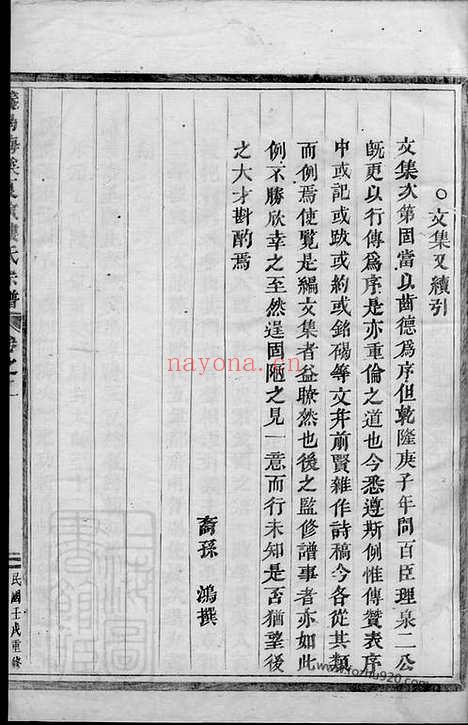 ○文集又續引
文集次第固當以齒德爲序但乾隆庚子年問百臣理泉二公
旣更以行傳爲序是亦重倫之道也今悉遵斯例惟傳贊表序
中或記或跋或約或銘碣等文并前賢雜作詩稿今各從其類
而例焉使覽是編文集者益瞭然也後之監修譜事者亦如此
例不勝欣幸之至然逞固陋之見一意而行未知是否猶望後
之大才斟酌焉
裔孫 鴻撰
氏宗譜
卷之一
民國壬戌重修
nayona.cn